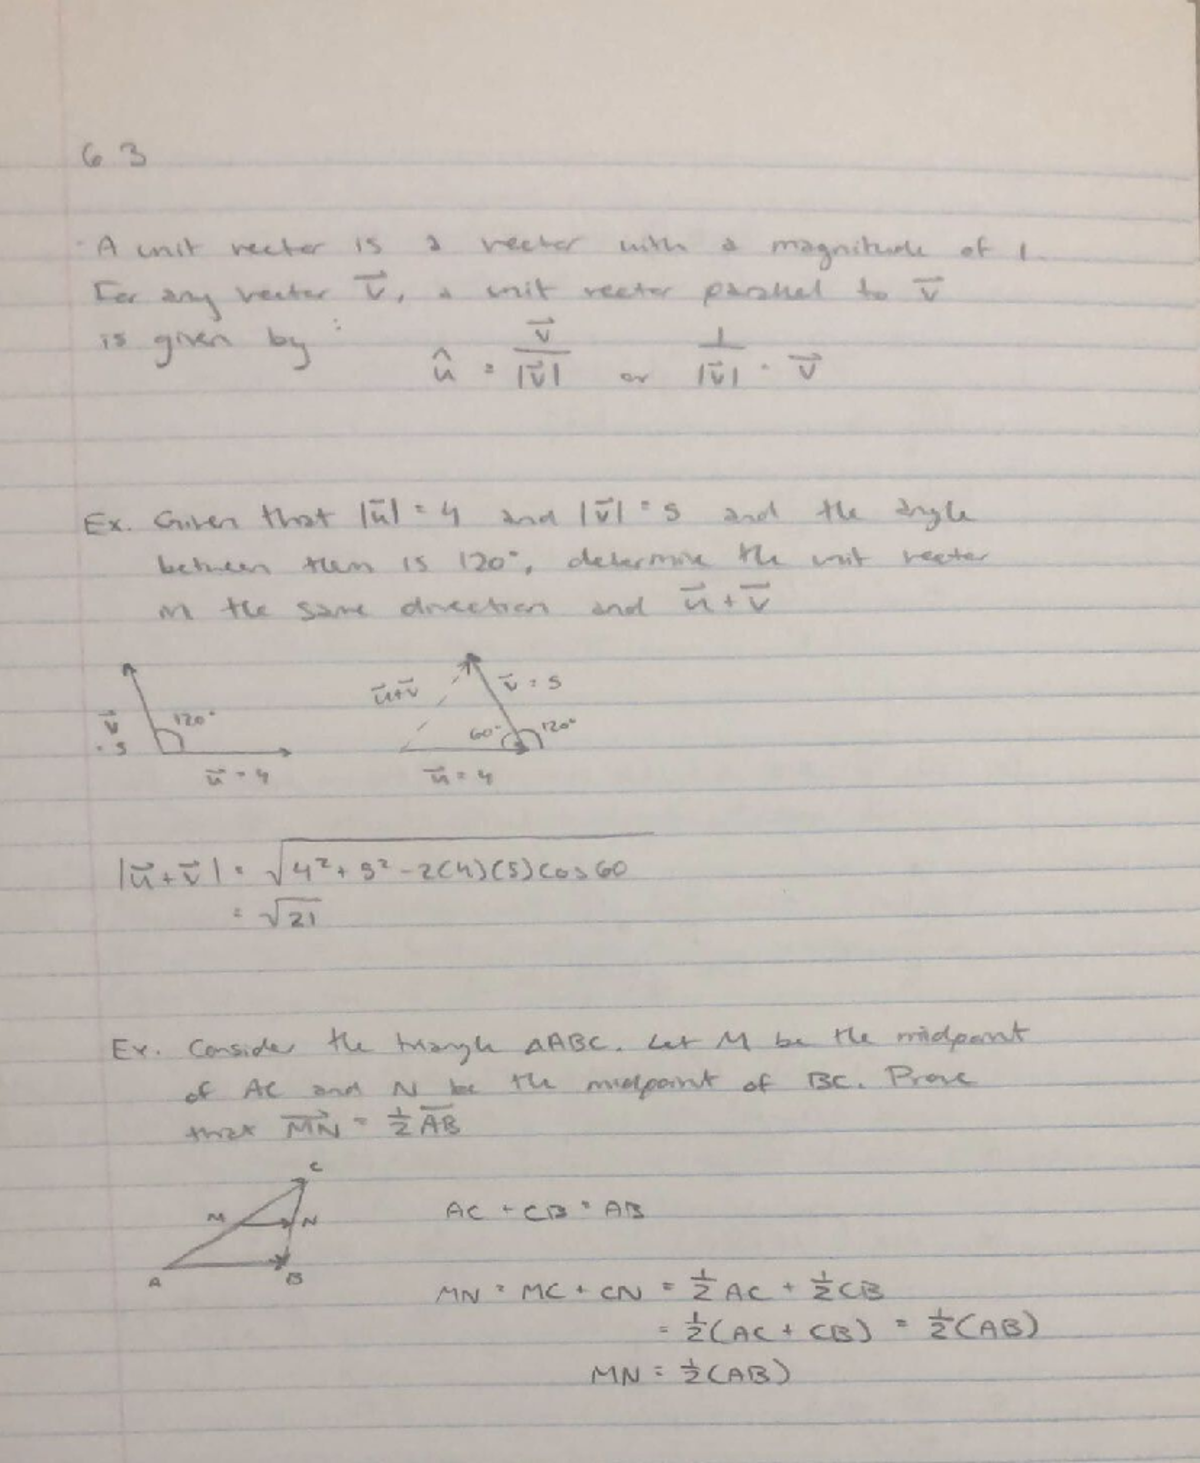 6 3
· A unit vector is a vector with a magnitude of 1.
For any vector v⃗, a unit vector parallel to v⃗
is given by :
û = v⃗/|v⃗| or 1/|v⃗| · v⃗
Ex. Given that |u⃗| = 4 and |v⃗| = 5 and the angle
between them is 120°, determine the unit vector
in the same direction and u⃗ + v⃗
v⃗ = 5 120° u⃗ = 4
u⃗+v⃗ v⃗ = 5 60° 120° u⃗ = 4
|u⃗ + v⃗| = √(4² + 5² - 2(4)(5)cos60
= √21
Ex. Consider the triangle △ABC. Let M be the midpoint
of AC and N be the midpoint of BC. Prove
that M⃗N⃗ = ½ A̅B̅
C
M N
A B
AC + CB = AB
MN = MC + CN = ½ AC + ½ CB
= ½(AC + CB) = ½(AB)
MN = ½(AB)